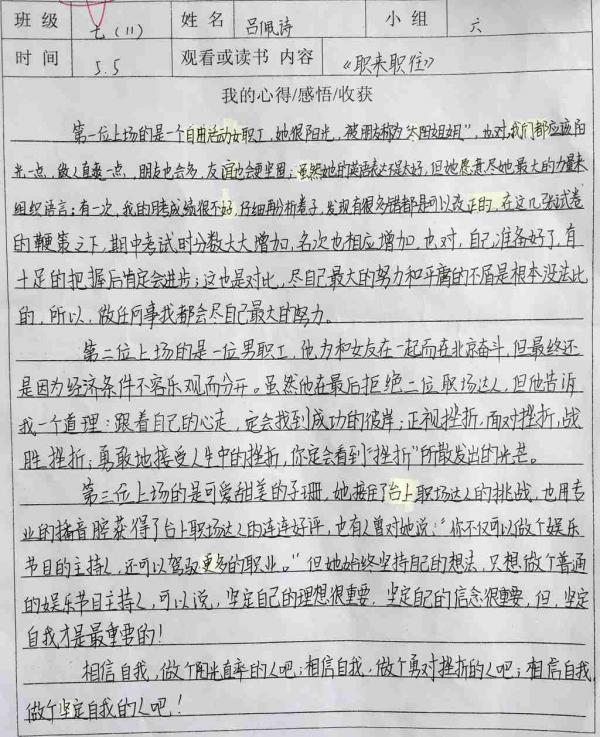 班级 七(11) 姓名 吕佩诗 小组 六
时间 5.5 观看或读书内容 《职来职往》
我的心得/感悟/收获
第一位上场的是一个自由活动女职工,她很阳光,被朋友称为"太阳姐姐",也对,我们都应该阳
光一点,做人直率一点,朋友也会多,友谊也会更坚固;虽然她的英语表达不太好,但她愿意尽她最大的力量来
组织语言;有一次,我的月考成绩很不好,仔细再分析卷子,发现有很多错都是可以改正的,在这几张试卷
的鞭策之下,期中考试时分数大大增加,名次也相应增加,也对,自己准备好了,有
十足的把握后肯定会进步;这也是对比,尽自己最大的努力和平庸的不屑是根本没法比
的,所以,做任何事我都会尽自己最大的努力。
第二位上场的是一位男职工,他为和女友在一起而在北京奋斗,但最终还
是因为经济条件不容乐观而分开。虽然他在最后拒绝二位职场达人,但他告诉
我一个道理:跟着自己的心走,定会找到成功的彼岸;正视挫折,面对挫折,战
胜挫折;勇敢地接受人生中的挫折,你定会看到"挫折"所散发出的光芒。
第三位上场的是可爱甜美的子珊,她接住了台上职场达人的挑战,也用专
业的播音腔获得了台上职场达人的连连好评,也有人曾对她说:"你不仅可以做个娱乐
节目的主持人,还可以驾驭更多的职业。"但她始终坚持自己的想法,只想做个普通
的娱乐节目主持人,可以说,坚定自己的理想很重要,坚定自己的信念很重要,但,坚定
自我才是最重要的!
相信自我,做个阳光直率的人吧;相信自我,做个勇对挫折的人吧;相信自我,
做个坚定自我的人吧!